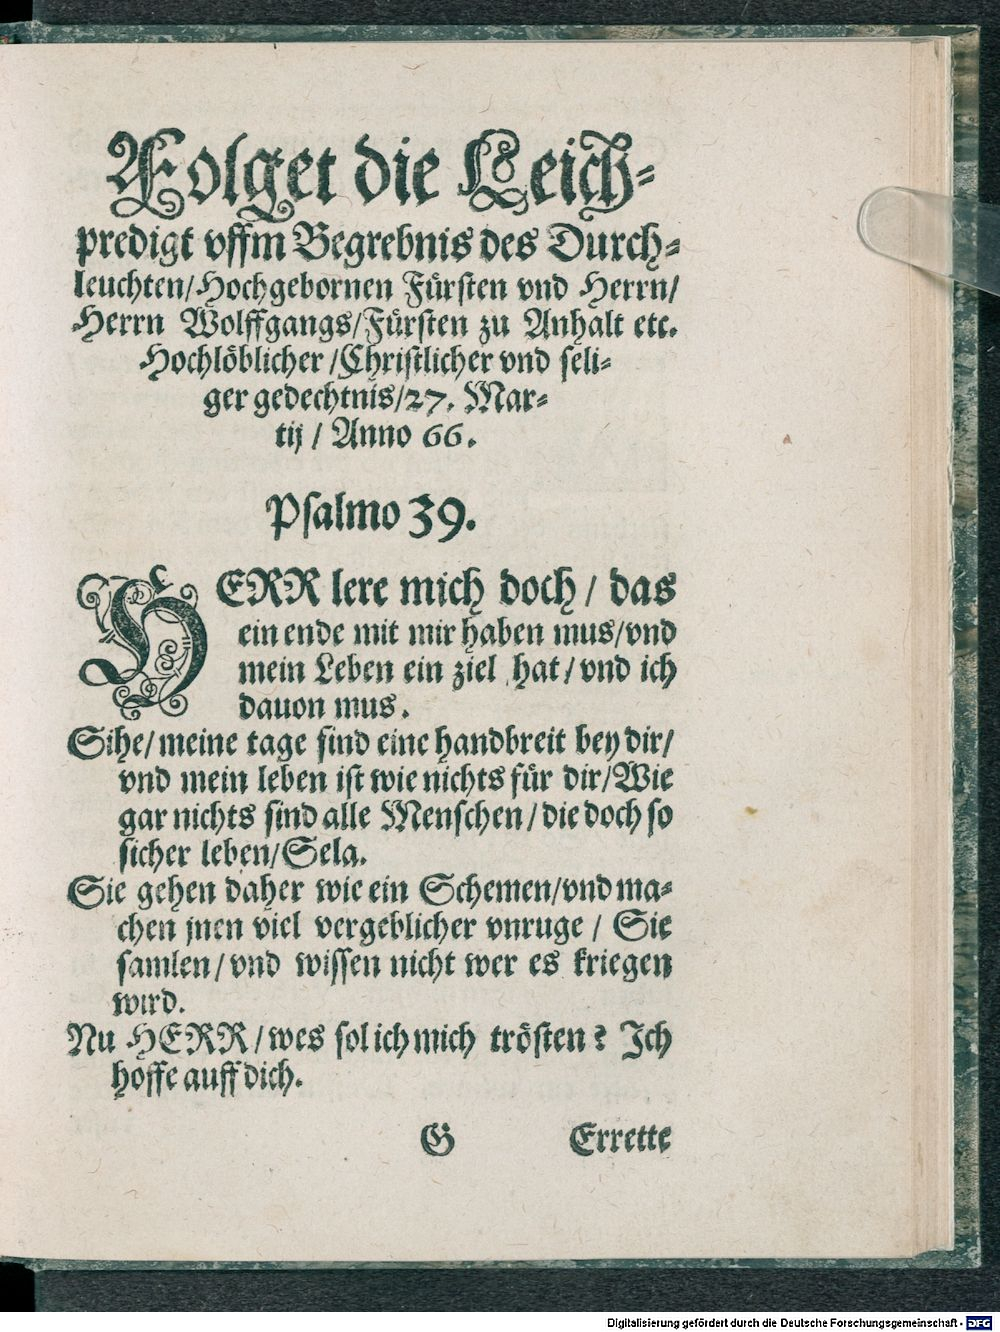 Folget die Leich-
predigt vffm Begrebnis des Durch-
leuchten/Hochgebornen Fürsten vnd Herrn/
Herrn Wolffgangs/Fürsten zu Anhalt etc.
Hochlöblicher/Christlicher vnd seli-
ger gedechtnis/27. Mar-
tij / Anno 66.
Psalmo 39.
HERR lere mich doch / das
ein ende mit mir haben mus/vnd
mein Leben ein ziel hat/vnd ich
dauon mus.
Sihe/meine tage sind eine handbreit bey dir/
vnd mein leben ist wie nichts für dir/Wie
gar nichts sind alle Menschen/die doch so
sicher leben/Sela.
Sie gehen daher wie ein Schemen/vnd ma-
chen jnen viel vergeblicher vnruge / Sie
samlen/vnd wissen nicht wer es kriegen
wird.
Nu HERR/wes sol ich mich trösten? Ich
hoffe auff dich.
G Errette
Digitalisierung gefördert durch die Deutsche Forschungsgemeinschaft - DFG